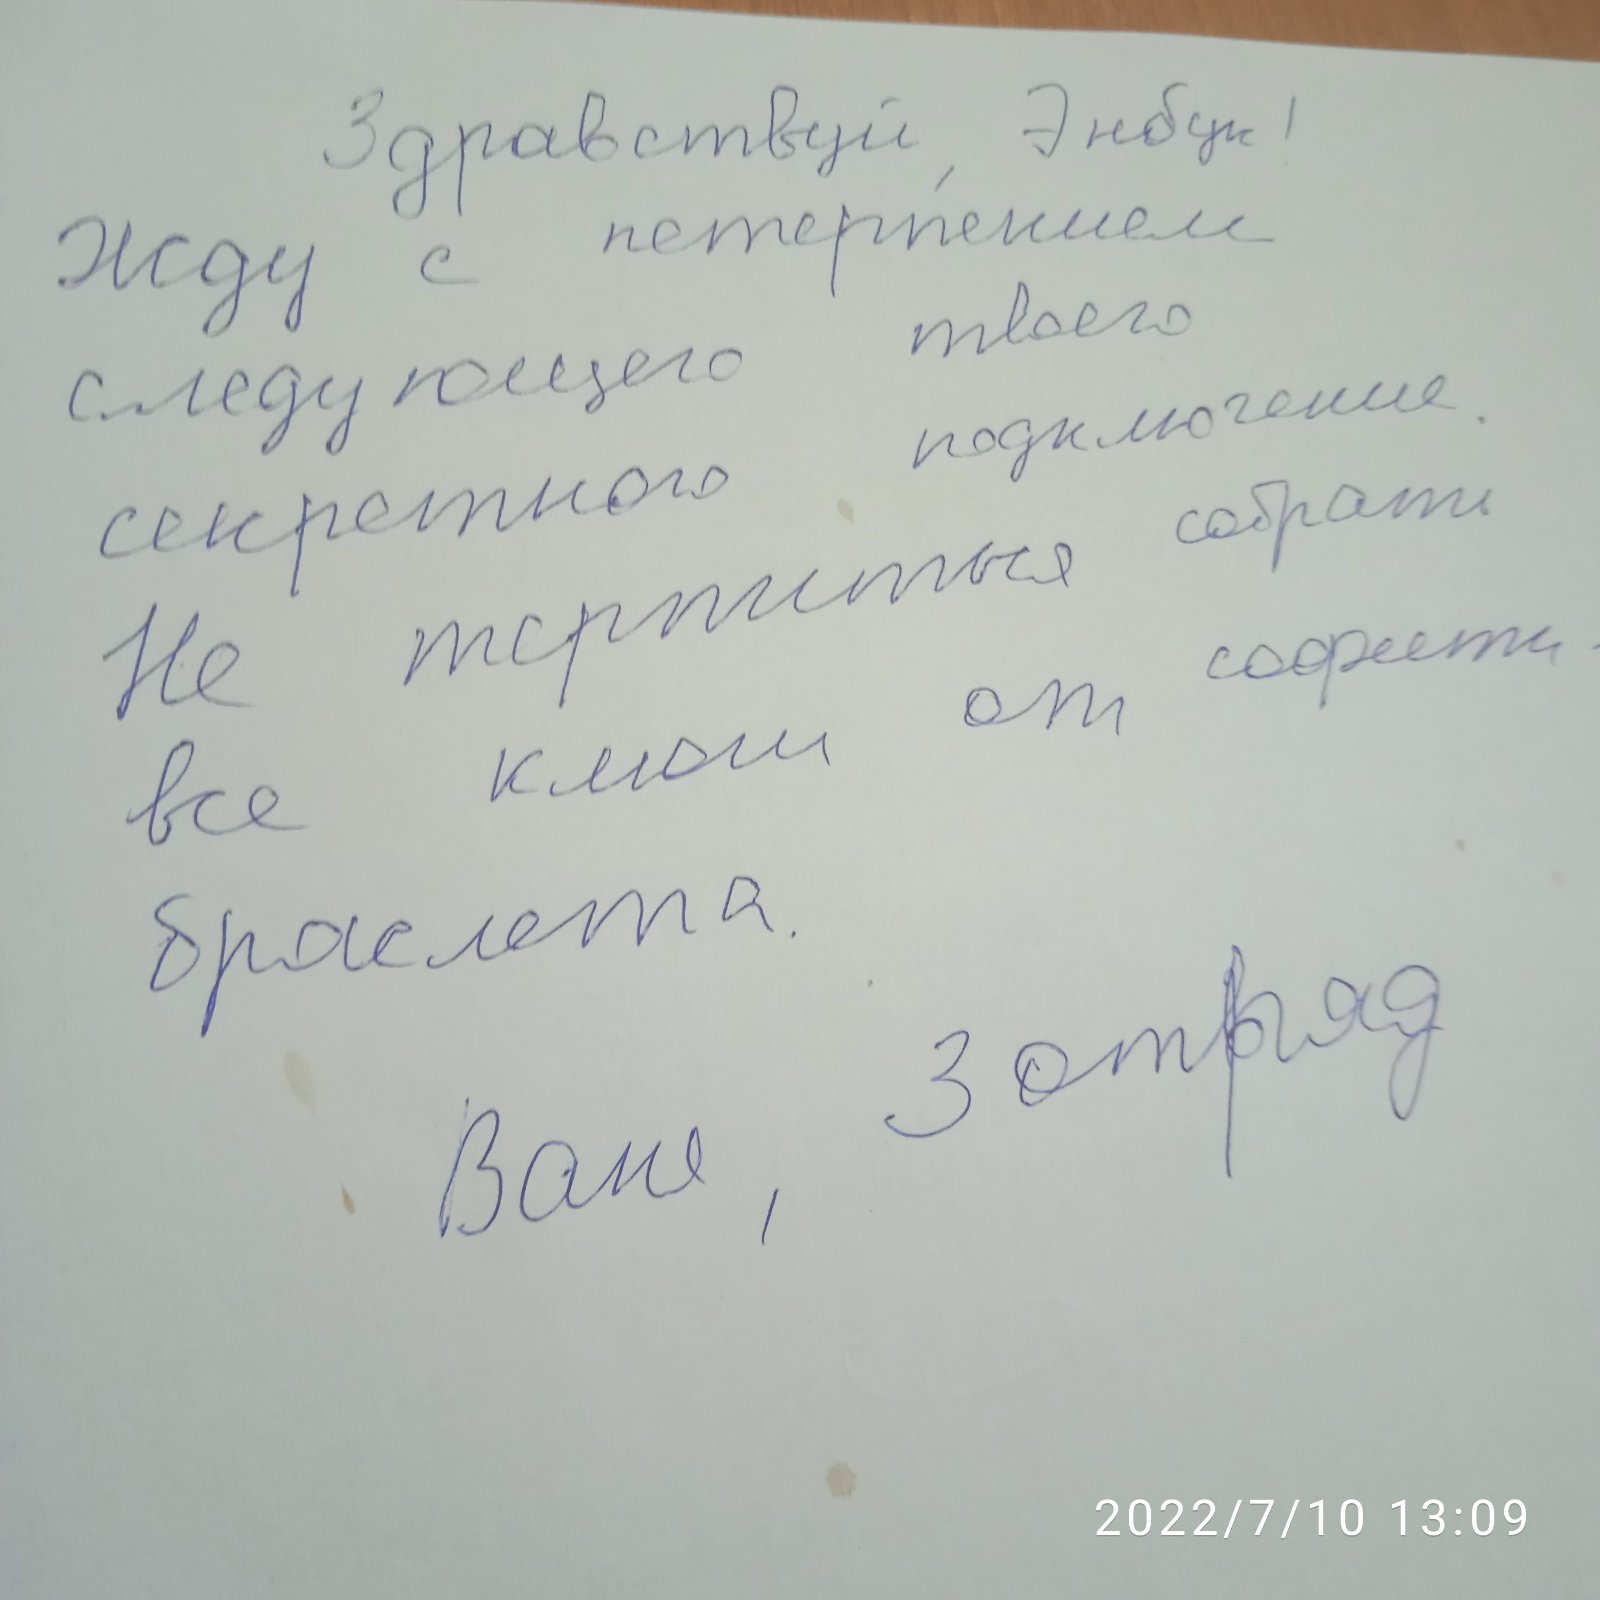 Здравствуй, Энбук!
Жду с нетерпением
следующего твоего
секретного подключение.
Не терпиться собрать
все ключи от
браслета.
Ваня, 3 отряд
2022/7/10 13:09